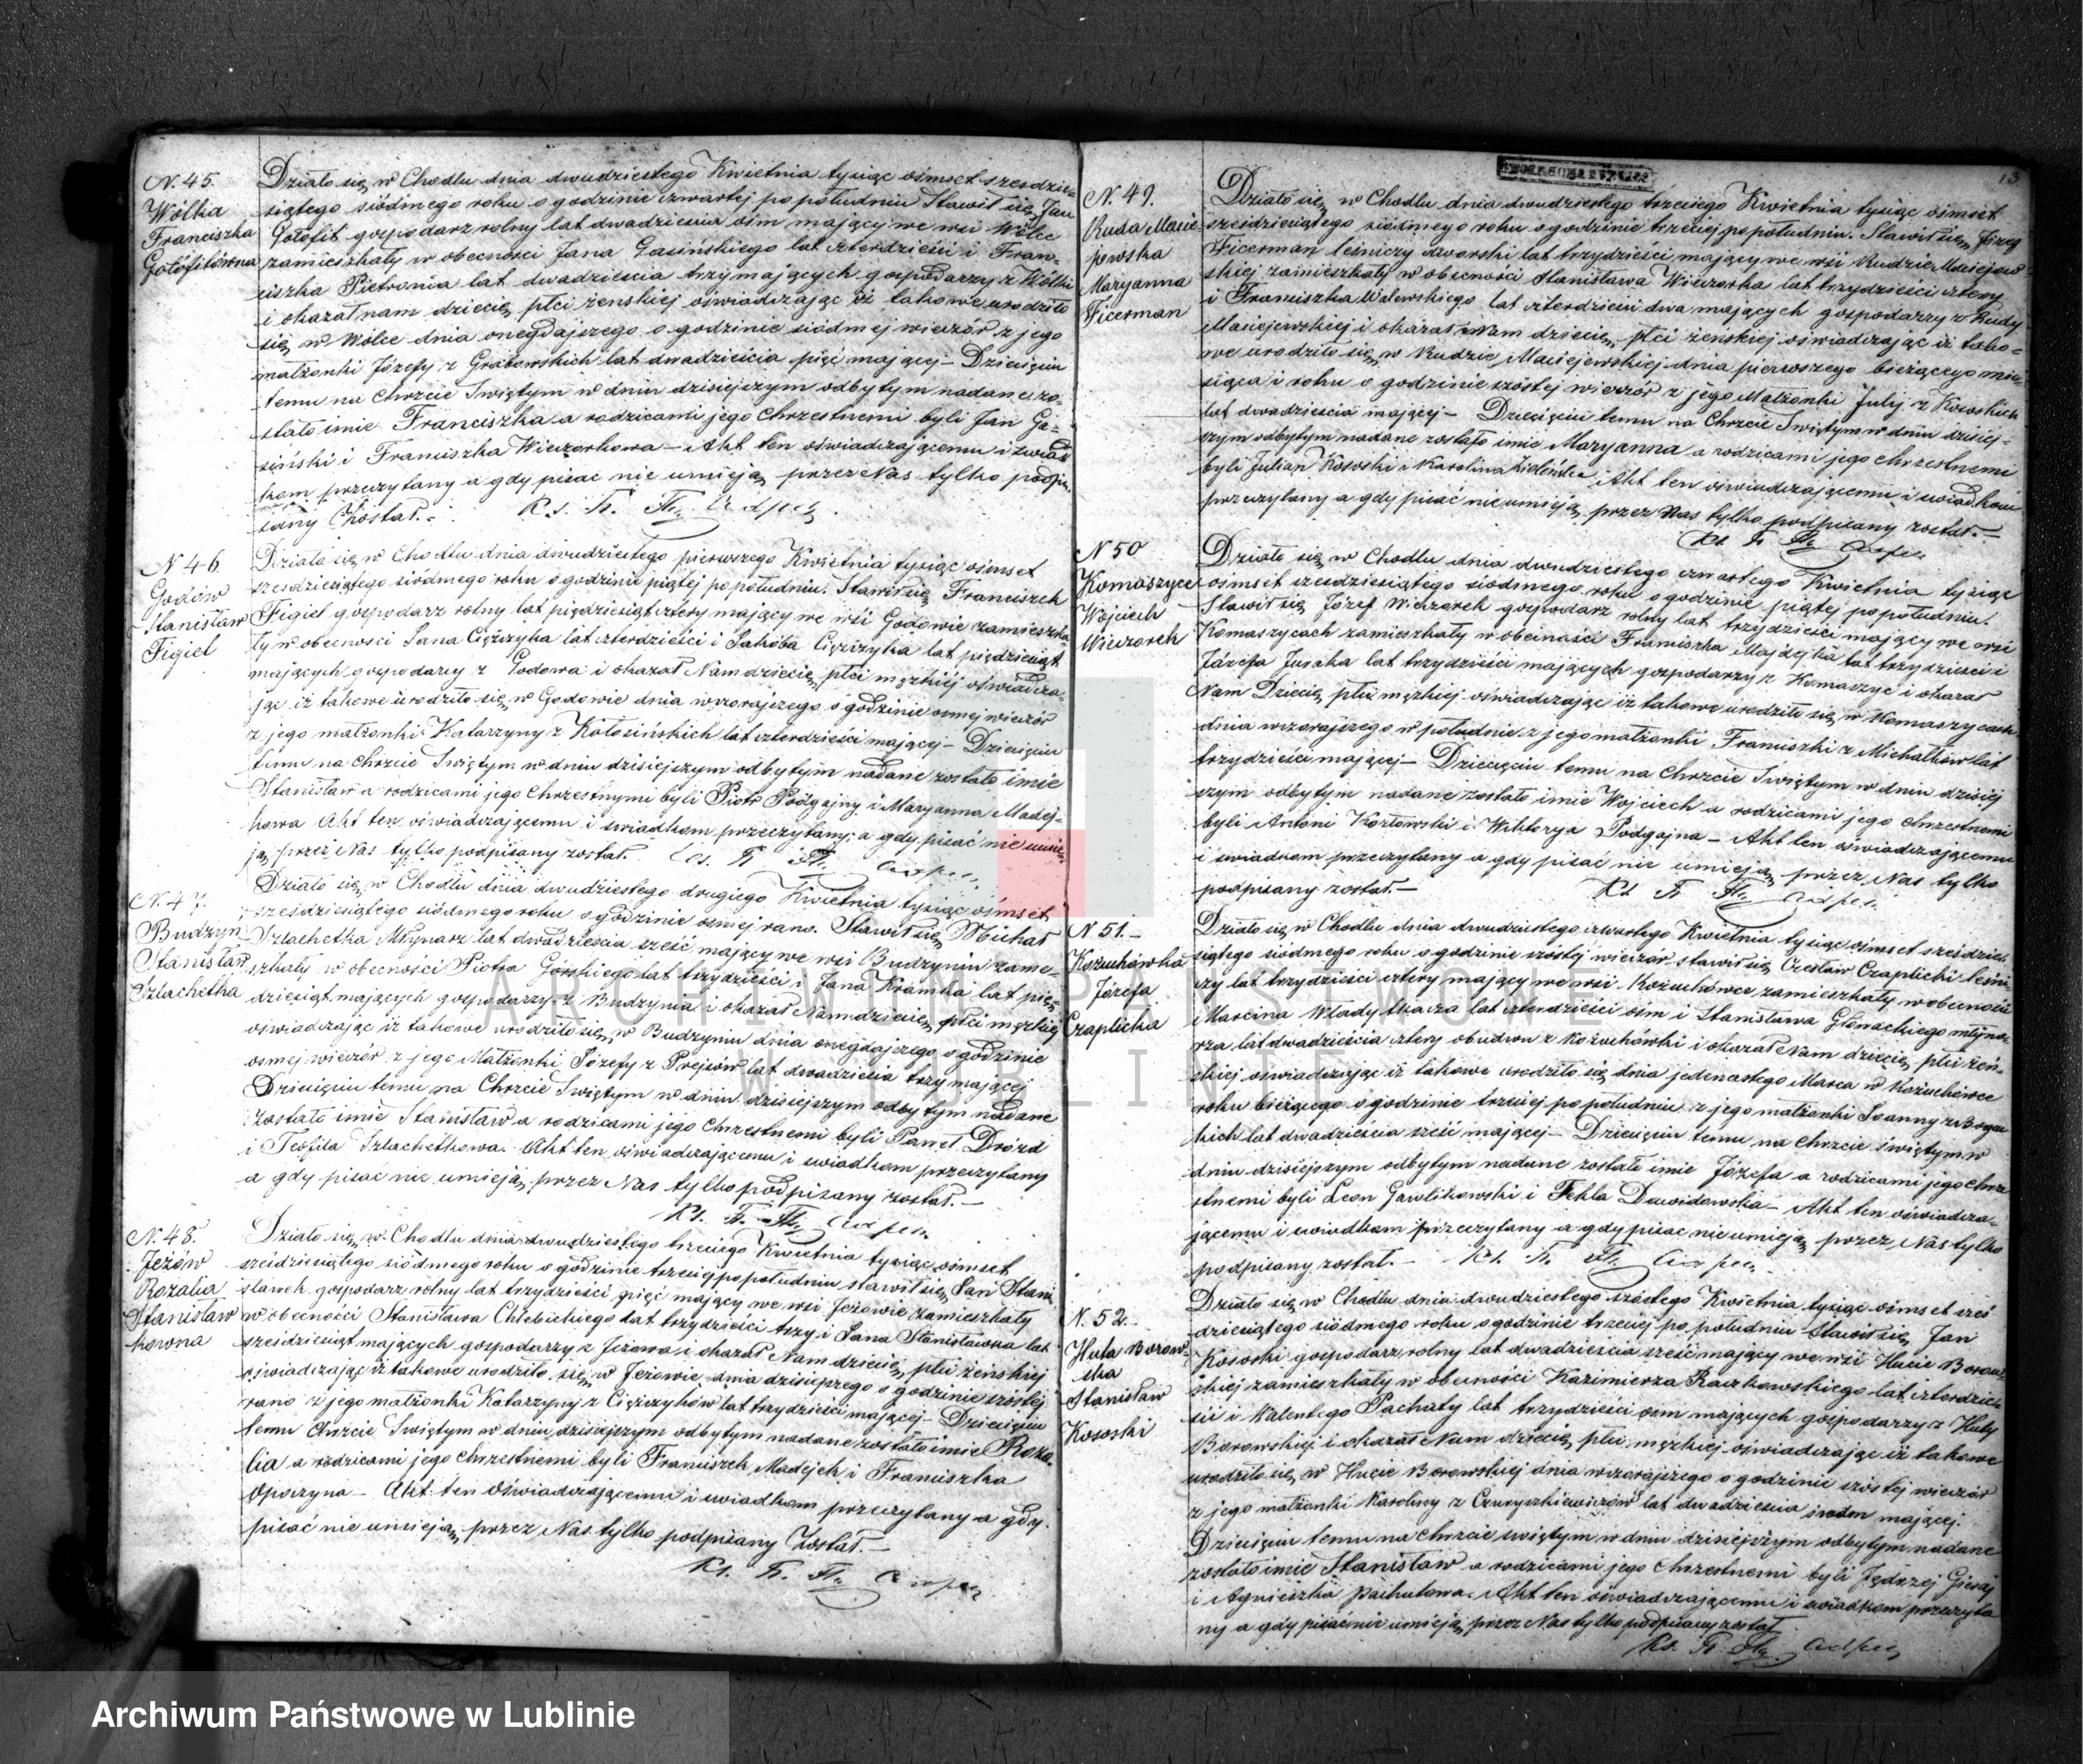 N. 45.
Wólka
Franciszka
Gołofitówna
Działo się w Chodlu dnia dwudziestego Kwietnia tysiąc ośmset szesdzie-
siątego siódmego roku o godzinie czwartej po południu Stawił się Jan
Gołofit gospodarz rolny lat dwadzieścia ośm mający we wsi Wólce
zamieszkały w obecności Jana Gasińskiego lat czterdzieści i Fran-
ciszka Pietronia lat dwadzieścia trzy mających gospodarzy z Wólki
i okazał nam dziecię płci żenskiej oświadczając iż takowe urodziło
się w Wólce dnia onegdajszego o godzinie siódmej wieczór z jego
małżonki Józefy z Grabowskich lat dwadzieścia pięć mającej – Dziecięciu
temu na Chrzcie Swiętym w dniu dzisiejszym odbytym nadane zo-
stało imie Franciszka a rodzicami jego Chrzestnemi byli Jan Ga-
siński i Franciszka Wieczorkowa – Akt ten oświadczającemu i świad
kom przeczytany a gdy pisać nie umieją przez Nas tylko podpi-
sany Został. –
N 46
Godów
Stanisław
Figiel
Działo się w Chodlu dnia dwudziestego pierwszego Kwietnia tysiąc ośmset
szesdziesiątego siódmego roku o godzinie piątej po południu. Stawił się Franciszek
Figiel gospodarz rolny lat pięćdziesiąt cztery mający we wsi Godowie zamieszka
ły w obecności Jana Ciężzyka lat czterdzieści i Jakóba Ciężzyka lat pięćdziesiąt
mających gospodarzy z Godowa i okazał Nam dziecię płci męzkiej oświadcza-
jąc iż takowe urodziło się w Godowie dnia wczorajszego o godzinie osmej wieczór
z jego małżonki Katarzyny z Kołosińskich lat czterdzieści mającej – Dziecięciu
temu na chrzcie Swiętym w dniu dzisiejszym odbytym nadane zostało imie
Stanisław a rodzicami jego Chrzestnymi byli Piotr Podgajny i Maryanna Madej-
kowa Akt ten oświadczającemu i swiadkom przeczytany, a gdy pisać nie umie
ją przez Nas tylko podpisany został.
N. 47.
Budzyn
Stanisław
Szlachetka
Działo się w Chodlu dnia dwudziestego drugiego Kwietnia tysiąc ośmset
sześdziesiątego siódmego roku o godzinie osmej rano. Stawił się Michał
Szlachetka Młynarz lat dwadzieścia sześć mający we wsi Budzyniu zamie-
szkały w obecności Piotra Górskiego lat trzydzieści i Jana Kramka lat pię-
dziesiąt mających gospodarzy z Budzynia i okazał Nam dziecię płci męzkiej
oświadczając iż takowe urodziło się w Budzyniu dnia onegdajszego o godzinie
osmej wieczór z jego Małżonki Józefy z Prejsów lat dwadzieścia trzy mającej
Dziecięciu temu na Chrzcie Swiętym w dniu dzisiejszym odbytym nadane
zostało imie Stanisław a rodzicami jego Chrzestnemi byli Paweł Drózd
i Teofila Szlachetkowa. Akt ten oświadczającemu i swiadkom przeczytany
a gdy pisać nie umieją przez Nas tylko podpisany został. –
N. 48.
Jeżów
Rozalia
Stanisław
kówna
Działo się w Chodlu dnia dwudziestego trzeciego Kwietnia tysiąc ośmset
sześdziesiątego siódmego roku o godzinie trzeciej po południu stawił się Jan Stani
sławek gospodarz rolny lat trzydzieści pięć mający we wsi Jeżowie zamieszkały
w obecności Stanisława Chlebickiego lat trzydzieści trzy i Jana Stanisławka lat
sześdziesiąt mających gospodarzy z Jeżowa i okazał Nam dziecię płci żenskiej
oświadczając iż takowe urodziło się w Jeżowie dnia dzisiejszego o godzinie szóstej
rano z jego małżonki Katarzyny z Ciężzyków lat trzydzieści mającej – Dziecięciu
temu Chrzcie Swiętym w dniu dzisiejszym odbytym nadane zostało imie Roza-
lia a rodzicami jego Chrzestnemi byli Franciszek Madejek i Franciszka
Opoczyna – Akt ten Oświadczającemu i swiadkom przeczytany a gdy
pisać nie umieją przez Nas tylko podpisany Został. –
13
N. 49.
Ruda Macie-
jowska
Maryanna
Ficerman
Działo się w Chodlu dnia dwudziestego trzeciego Kwietnia tysiąc ośmset
sześdziesiątego siódmego roku o godzinie trzeciej po południu. Stawił się Józef
Ficerman leśniczy dworski lat trzydzieści mający we wsi Rudzie Maciejow-
skiej zamieszkały w obecności Stanisława Wieczorka lat trzydzieści cztery
i Franciszka Walewskiego lat czterdzieści dwa mających gospodarzy z Rudy
Maciejewskiej i okazał Nam dziecię płci żenskiej oświadczając iż tako-
we urodziło się w Rudzie Maciejewskiej dnia pierwszego bieżącego mie-
siąca i roku o godzinie szóstej wieczór z jego Małżonki Julij z Kososkich
lat dwadzieścia mającej – Dziecięciu temu na Chrzcie Swiętym w dniu dzisiej-
szym odbytym nadane zostało imie Maryanna a rodzicami jego chrzestnemi
byli Julian Kososki i Karolina Zielińska Akt ten oświadczającemu i swiadkom
przeczytany a gdy pisać nie umieją przez Nas tylko podpisany został. –
N 50
Komaszyce
Wojciech
Wieczorek
Działo się w Chodlu dnia dwudziestego czwartego Kwietnia tysiąc
ośmset szesdziesiątego siódmego roku o godzinie piątej po południu.
Stawił się Józef Wieczorek gospodarz rolny lat trzydzieści mający we wsi
Komaszycach zamieszkały w obecności Franciszka Majdejka lat trzydzieści i
Józefa Jusaka lat trzydzieści mających gospodarzy z Komaszyc i okazał
Nam Dziecię płci męzkiej oświadczając iż takowe urodziło się w Komaszycach
dnia wczorajszego w południe z jego małżonki Franciszki z Michałków lat
trzydzieści mającej – Dziecięciu temu na Chrzcie Swiętym w dniu dzisiej
szym odbytym nadane zostało imie Wojciech a rodzicami jego chrzestnemi
byli Antoni Kozłowski i Wiktorya Podgajna – Akt ten oświadczającemu
i swiadkom przeczytany a gdy pisać nie umieją przez Nas tylko
podpisany został. –
N 51. –
Kożuchówka
Józefa
Czaplicka
Działo się w Chodlu dnia dwudziestego czwartego Kwietnia tysiąc ośmset sześdzie-
siątego siódmego roku o godzinie szóstej wieczór stawił się Czesław Czaplicki leśni-
czy lat trzydzieści cztery mający we wsi Kożuchówce zamieszkały w obecności
Marcina Władyłkacza lat czterdzieści óśm i Stanisława Głowackiego młyna-
rza lat dwadzieścia cztery obudwu z Kożuchówki i okazał Nam dziecię płci żeń-
skiej oświadczając iż takowe urodziło się dnia jedenastego Marca w Kożuchówce
roku bieżącego o godzinie trzeciej po południu z jego małżonki Joanny z Bogu
ckich lat dwadzieścia sześć mającej – Dziecięciu temu na chrzcie swiętym w
dniu dzisiejszym odbytym nadane zostało imie Józefa a rodzicami jego chrze
stnemi byli Leon Gawlikowski i Tekla Dawidowska – Akt ten oświadcza-
jącemu i swiadkom przeczytany a gdy pisać nie umieją przez Nas tylko
podpisany został. –
N. 52. –
Huta Borow-
ska
Stanisław
Kososki
Działo się w Chodlu dnia dwudziestego szóstego Kwietnia tysiąc ośmset sześ
dziesiątego siódmego roku o godzinie trzeciej po południu Stawił się Jan
Kososki gospodarz rolny lat dwadzieścia sześć mający we wsi Hucie Borow-
skiej zamieszkały w obecności Kazimierza Raczkowskiego lat czterdzie-
ści i Walentego Pachuty lat trzydzieści osm mających gospodarzy z Huty
Borowskiej i okazał Nam dziecię płci męzkiej oświadczając iż takowe
urodziło się w Hucie Borowskiej dnia wczorajszego o godzinie szóstej wieczór
z jego małżonki Karoliny z lat dwadzieścia siedm mającej.
Dziecięciu temu na chrzcie swiętym w dniu dzisiejszym odbytym nadane
zostało imie Stanisław a rodzicami jego Chrzestnemi byli Jędrzej Gieraj
i Agnieszka Pachutowa. Akt ten oświadczającemu i swiadkom przeczyta
ny a gdy pisać nie umieją przez Nas tylko podpisany został
ARCHIWUM PAŃSTWOWE
W LUBLINIE
Archiwum Państwowe w Lublinie